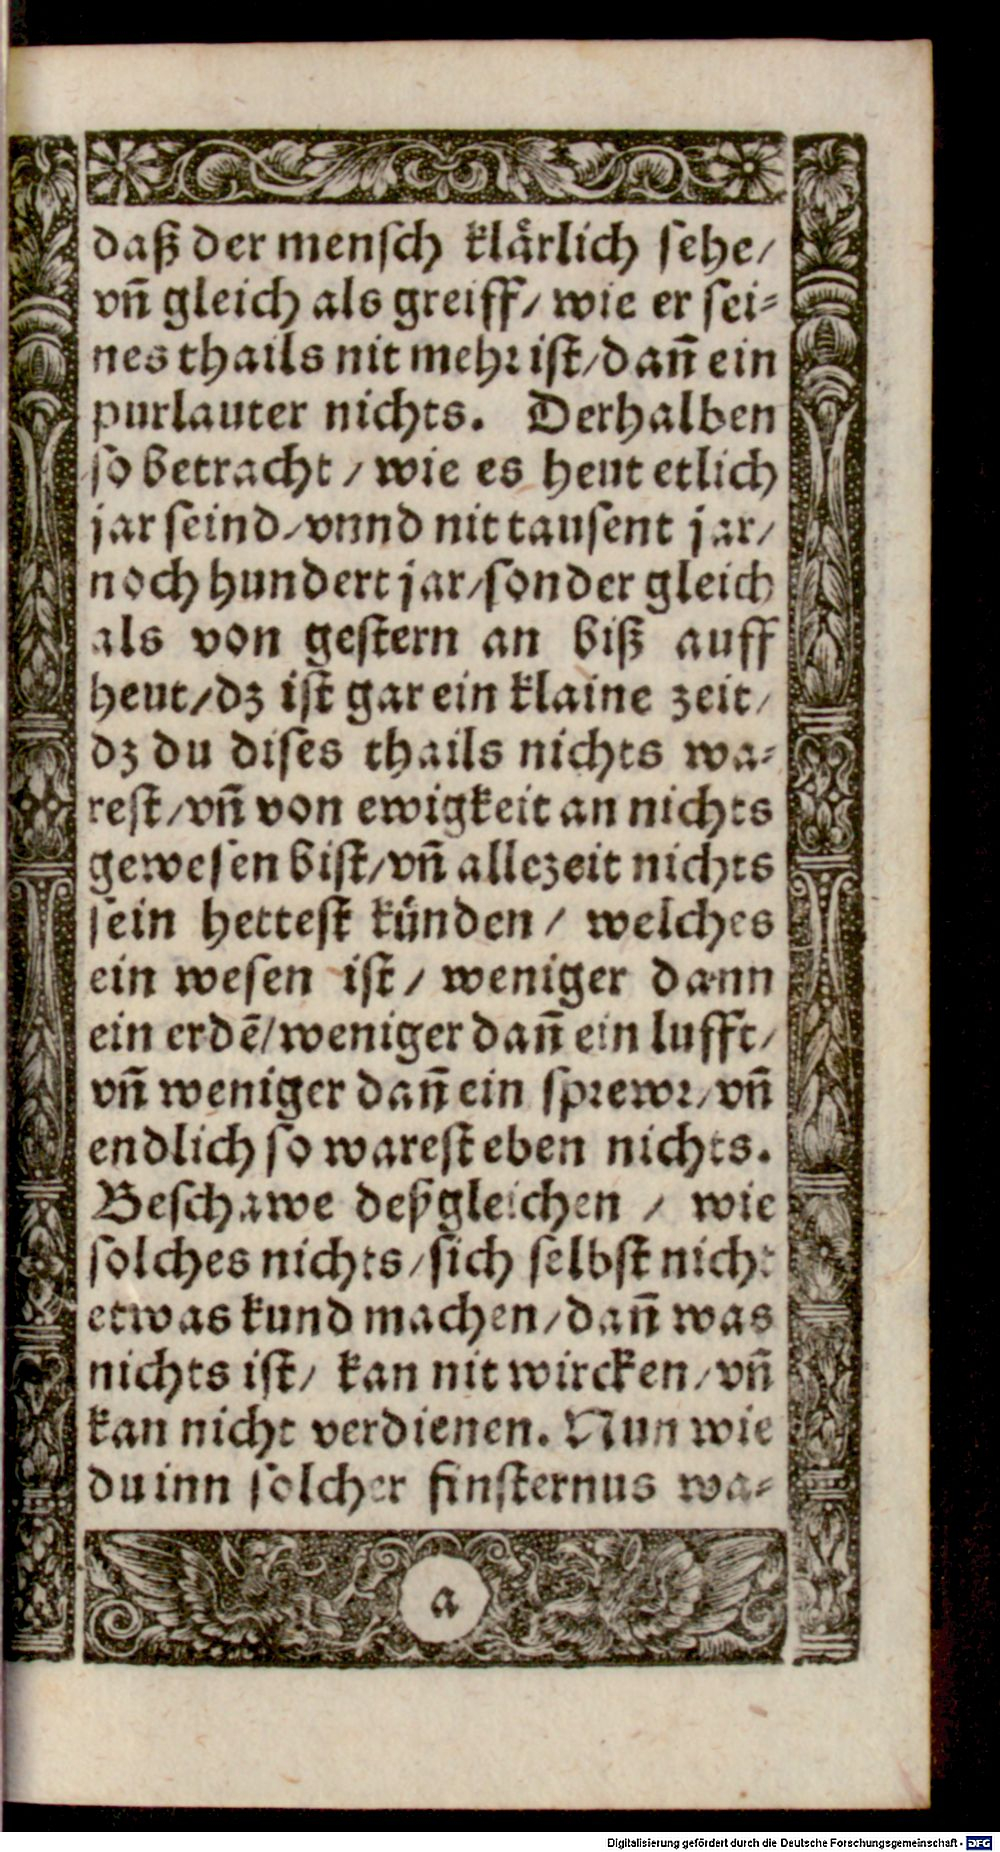 daß der mensch klaͤrlich sehe/
vñ gleich als greiff/ wie er sei-
nes thails nit mehr ist/ dañ ein
purlauter nichts. Derhalben
so betracht / wie es heut etlich
jar seind/ vnnd nit tausent jar/
noch hundert jar/ sonder gleich
als von gestern an biß auff
heut/ dz ist gar ein klaine zeit/
dz du dises thails nichts wa-
rest/ vñ von ewigkeit an nichts
gewesen bist/ vñ allezeit nichts
sein hettest künden / welches
ein wesen ist / weniger dann
ein erdē/ weniger dañ ein lufft/
vñ weniger dañ ein sprewr/ vñ
endlich so warest eben nichts.
Beschawe deßgleichen / wie
solches nichts / sich selbst nicht
etwas kund machen/ dañ was
nichts ist/ kan nit wircken/ vñ
kan nicht verdienen. Nun wie
du inn solcher finsternus wa-
a
Digitalisierung gefördert durch die Deutsche Forschungsgemeinschaft - DFG